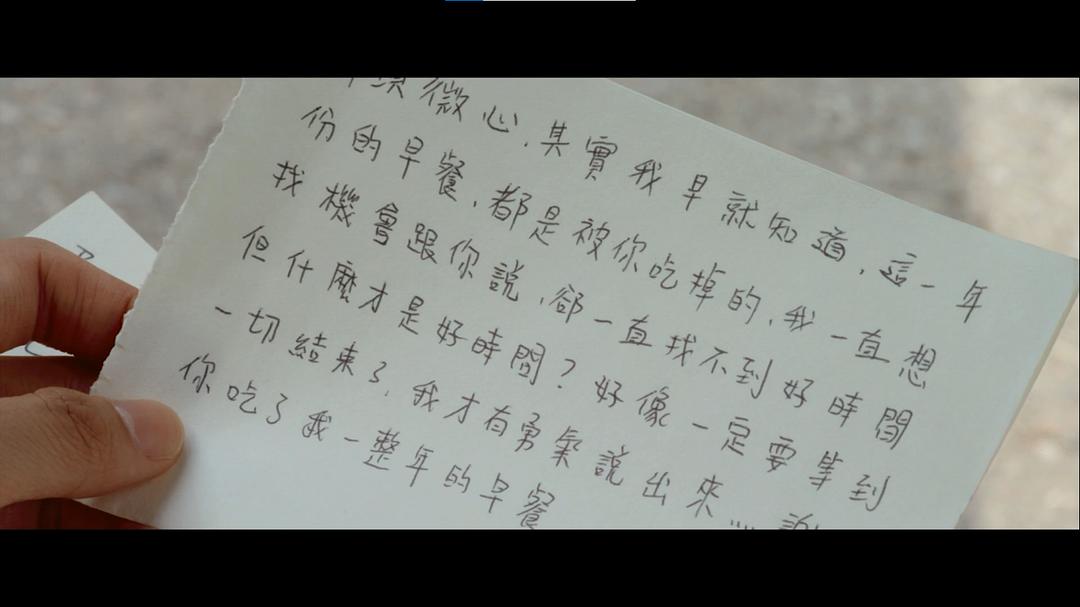 微心，其實我早就知道，這一年
份的早餐，都是被你吃掉的，我一直想
找機會跟你說，卻一直找不到好時間
但什麼才是好時間？好像一定要等到
一切結束了，我才有勇氣說出來……
你吃了我一整年的早餐